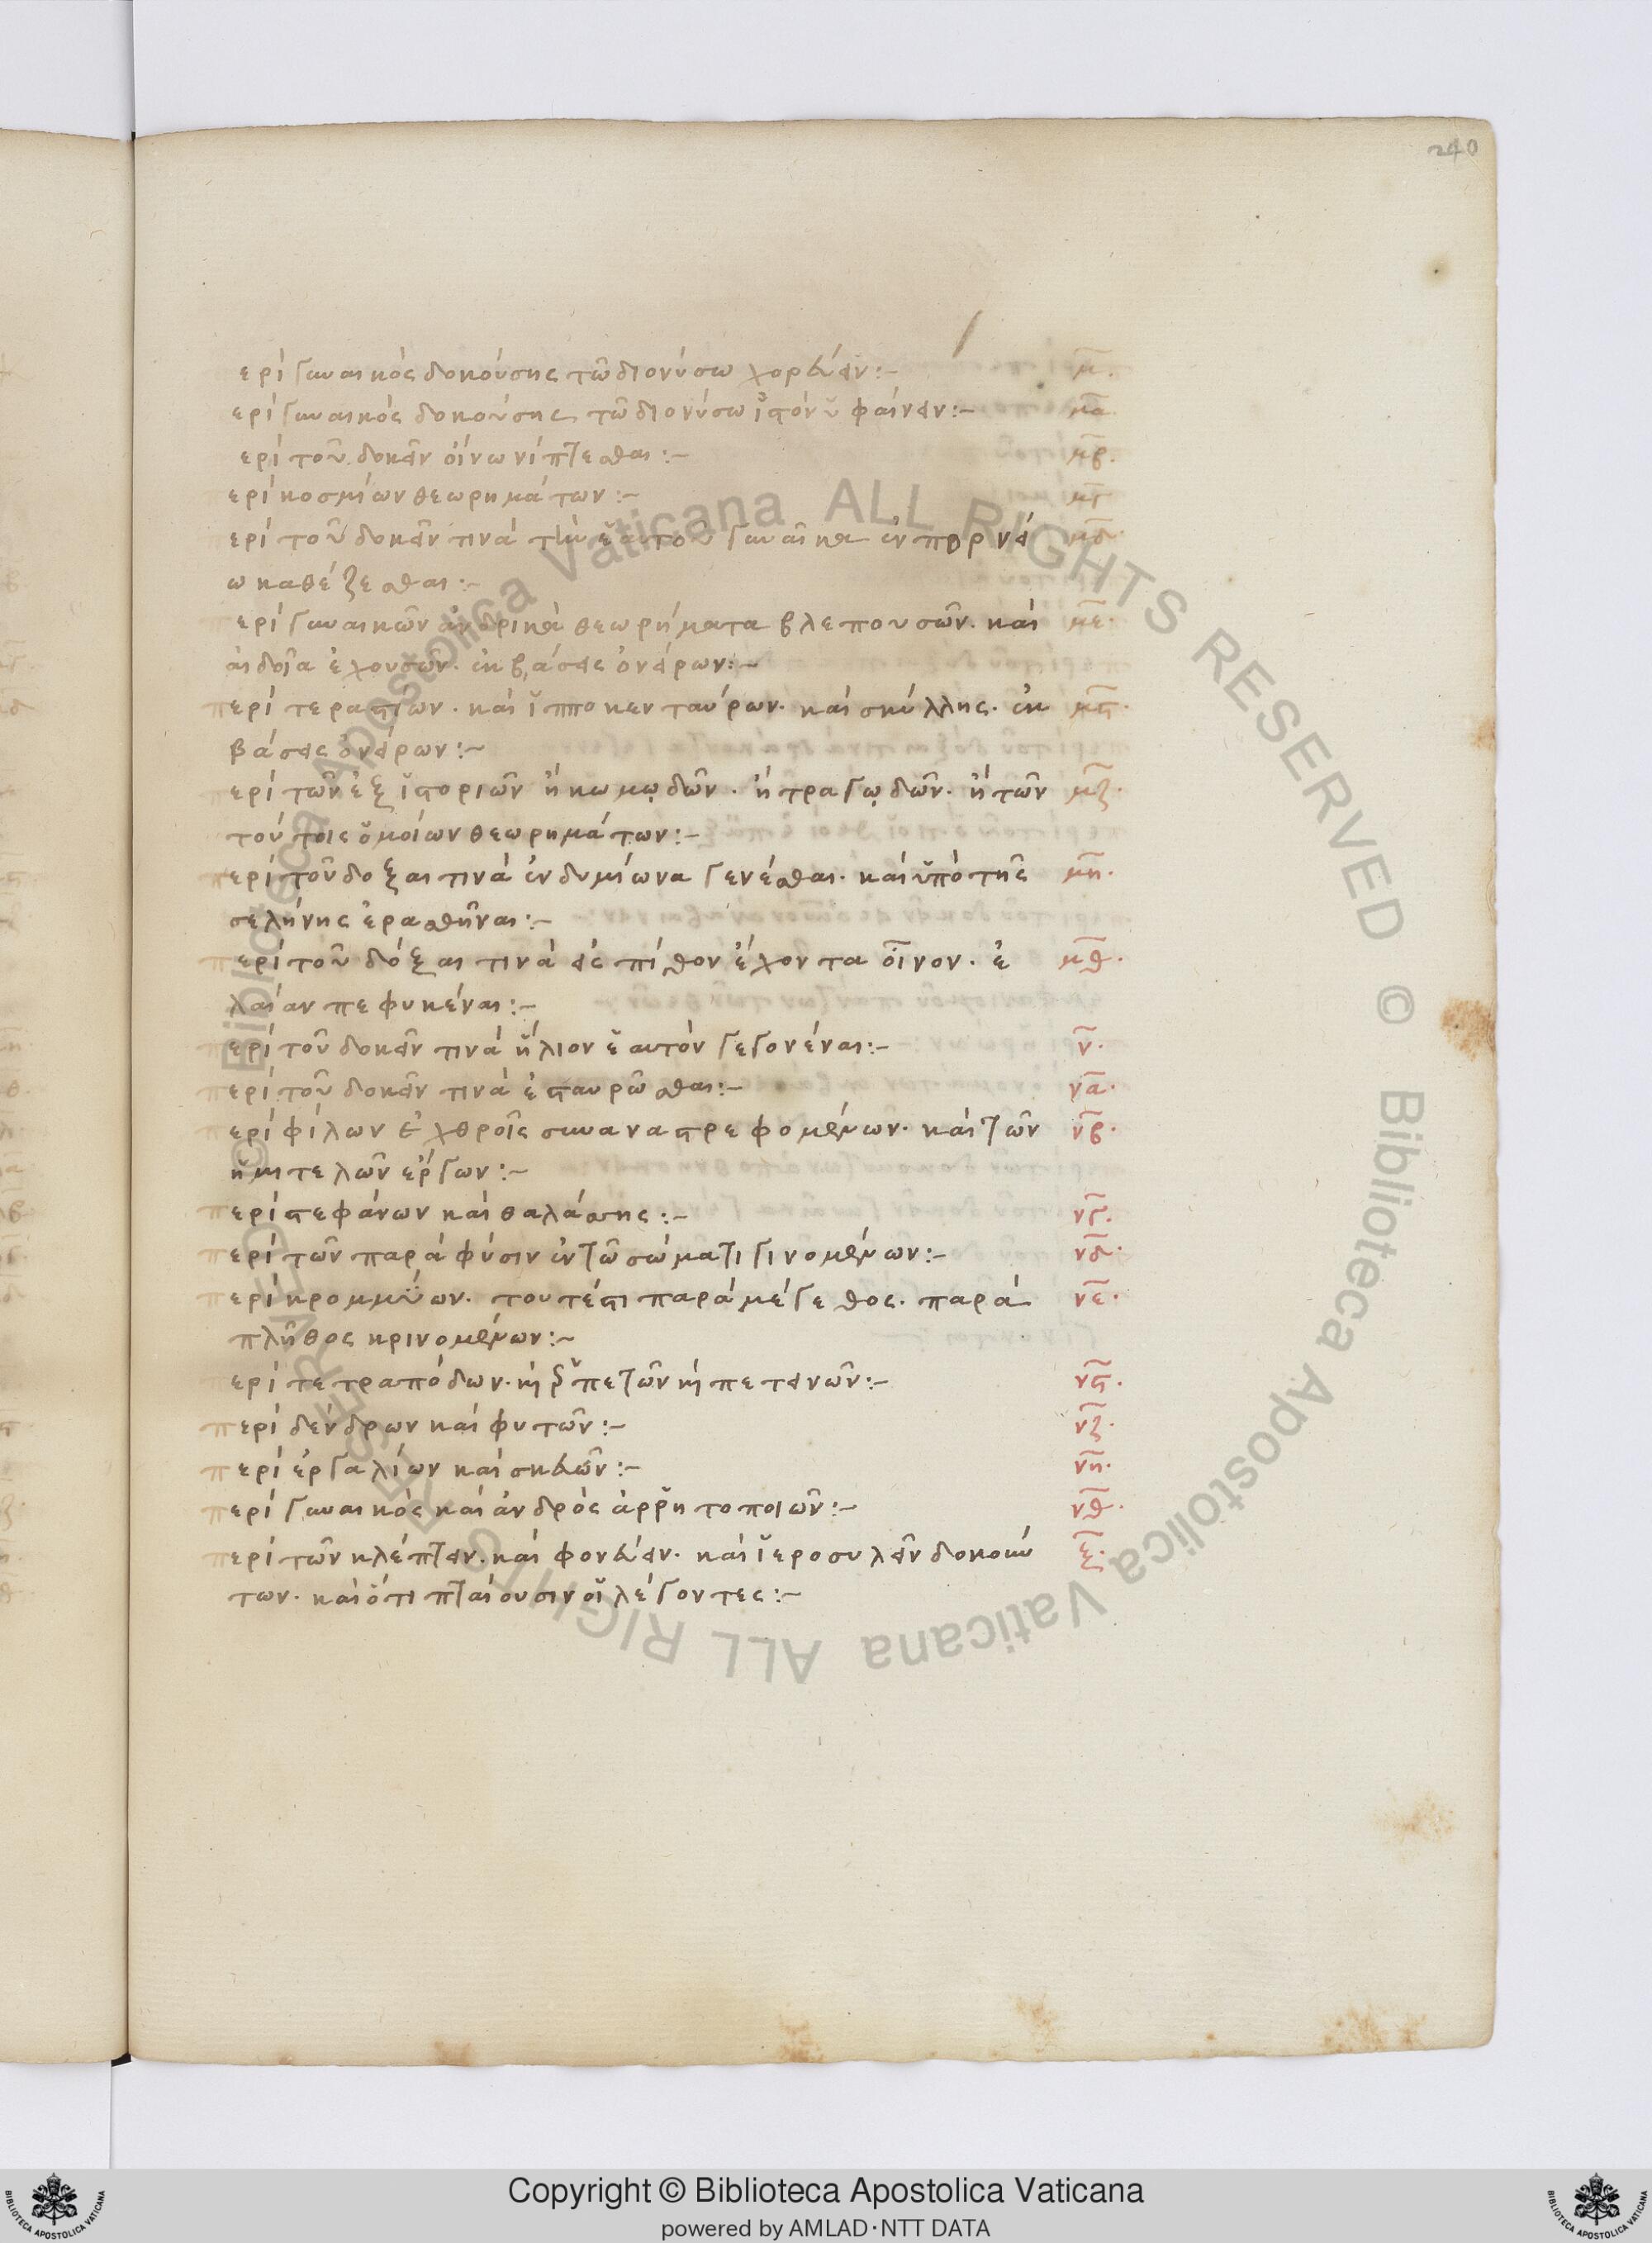 240
ερὶ γυναικὸς δοκούσης τῶ διονύσω χορεύειν:- μ̅.
ερὶ γυναικὸς δοκούσης τῶ διονύσω ἱστὸν ὑφαίνειν:- μα̅
ερὶ τοῦ δοκεῖν οἴνω νίπτεσθαι:- μβ̅.
ερὶ κοσμίων θεωρημάτων:- μγ̅
ερὶ τοῦ δοκεῖν τινὰ τὴν ἑαυτοῦ γυναῖκα ἐν πορνεί μδ̅.
ω καθέζεσθαι:-
ερὶ γυναικῶν ἀνδρικὰ θεωρήματα βλεπουσῶν. καὶ με̅.
αἰδοῖα ἐχουσῶν. ἐκβάσεις ὀνείρων:-
περὶ τεραστίων. καὶ ἱπποκενταύρων. καὶ σκύλλης. ἐκ μϛ̅.
βάσεις ὀνείρων:-
περὶ τῶν ἐξ ἱστοριῶν ἢ κωμῳδῶν. ἢ τραγῳδῶν. ἢ τῶν μζ̅.
τούτοις ὁμοίων θεωρημάτων:-
περὶ τοῦ δοξαι τινὰ ἐνδυμίωνα γενέσθαι. καὶ ὑπὸ τῆς μη̅.
σελήνης ἐρασθῆναι:-
περὶ τοῦ δόξαι τινὰ εἰς πίθον ἔχοντα οἶνον. ἐ μθ̅.
λαίαν πεφυκέναι:-
περὶ τοῦ δοκεῖν τινὰ ἥλιον ἑαυτὸν γεγονέναι:- ν̅.
περὶ τοῦ δοκεῖν τινὰ ἐσταυρῶσθαι:- να̅.
περὶ φίλων ἐχθροῖς συναναστρεφομένων. καὶ τῶν νβ̅.
ἡμιτελῶν ἔργων:-
περὶ στεφάνων καὶ θαλάσσης:- νγ̅.
περὶ τῶν παρὰ φύσιν ἐν τῶ σώματι γινομένων:- νδ̅.
περὶ κρομμύων. τουτέστι παρὰ μέγεθος. παρὰ νε̅.
πλῆθος κρινομένων:-
περὶ τετραπόδων. ἢ ἑρπετῶν ἢ πετεινῶν:- νϛ̅.
περὶ δένδρων καὶ φυτῶν:- νζ̅.
περὶ ἐργαλίων καὶ σκευῶν:- νη̅.
περὶ γυναικὸς καὶ ἀνδρὸς ἀρρητοποιῶν:- νθ̅.
περὶ τῶν κλέπτειν. καὶ φονεύειν. καὶ ἱεροσυλεῖν δοκούν ξ̅.
των. καὶ ὅτι πταίουσιν οἱ λέγοντες:-
© Biblioteca Apostolica Vaticana ALL RIGHTS RESERVED © Biblioteca Apostolica Vaticana ALL RIGHTS RESERVED
Copyright © Biblioteca Apostolica Vaticana
powered by AMLAD·NTT DATA
BIBLIOTECA APOSTOLICA VATICANA
BIBLIOTECA APOSTOLICA VATICANA